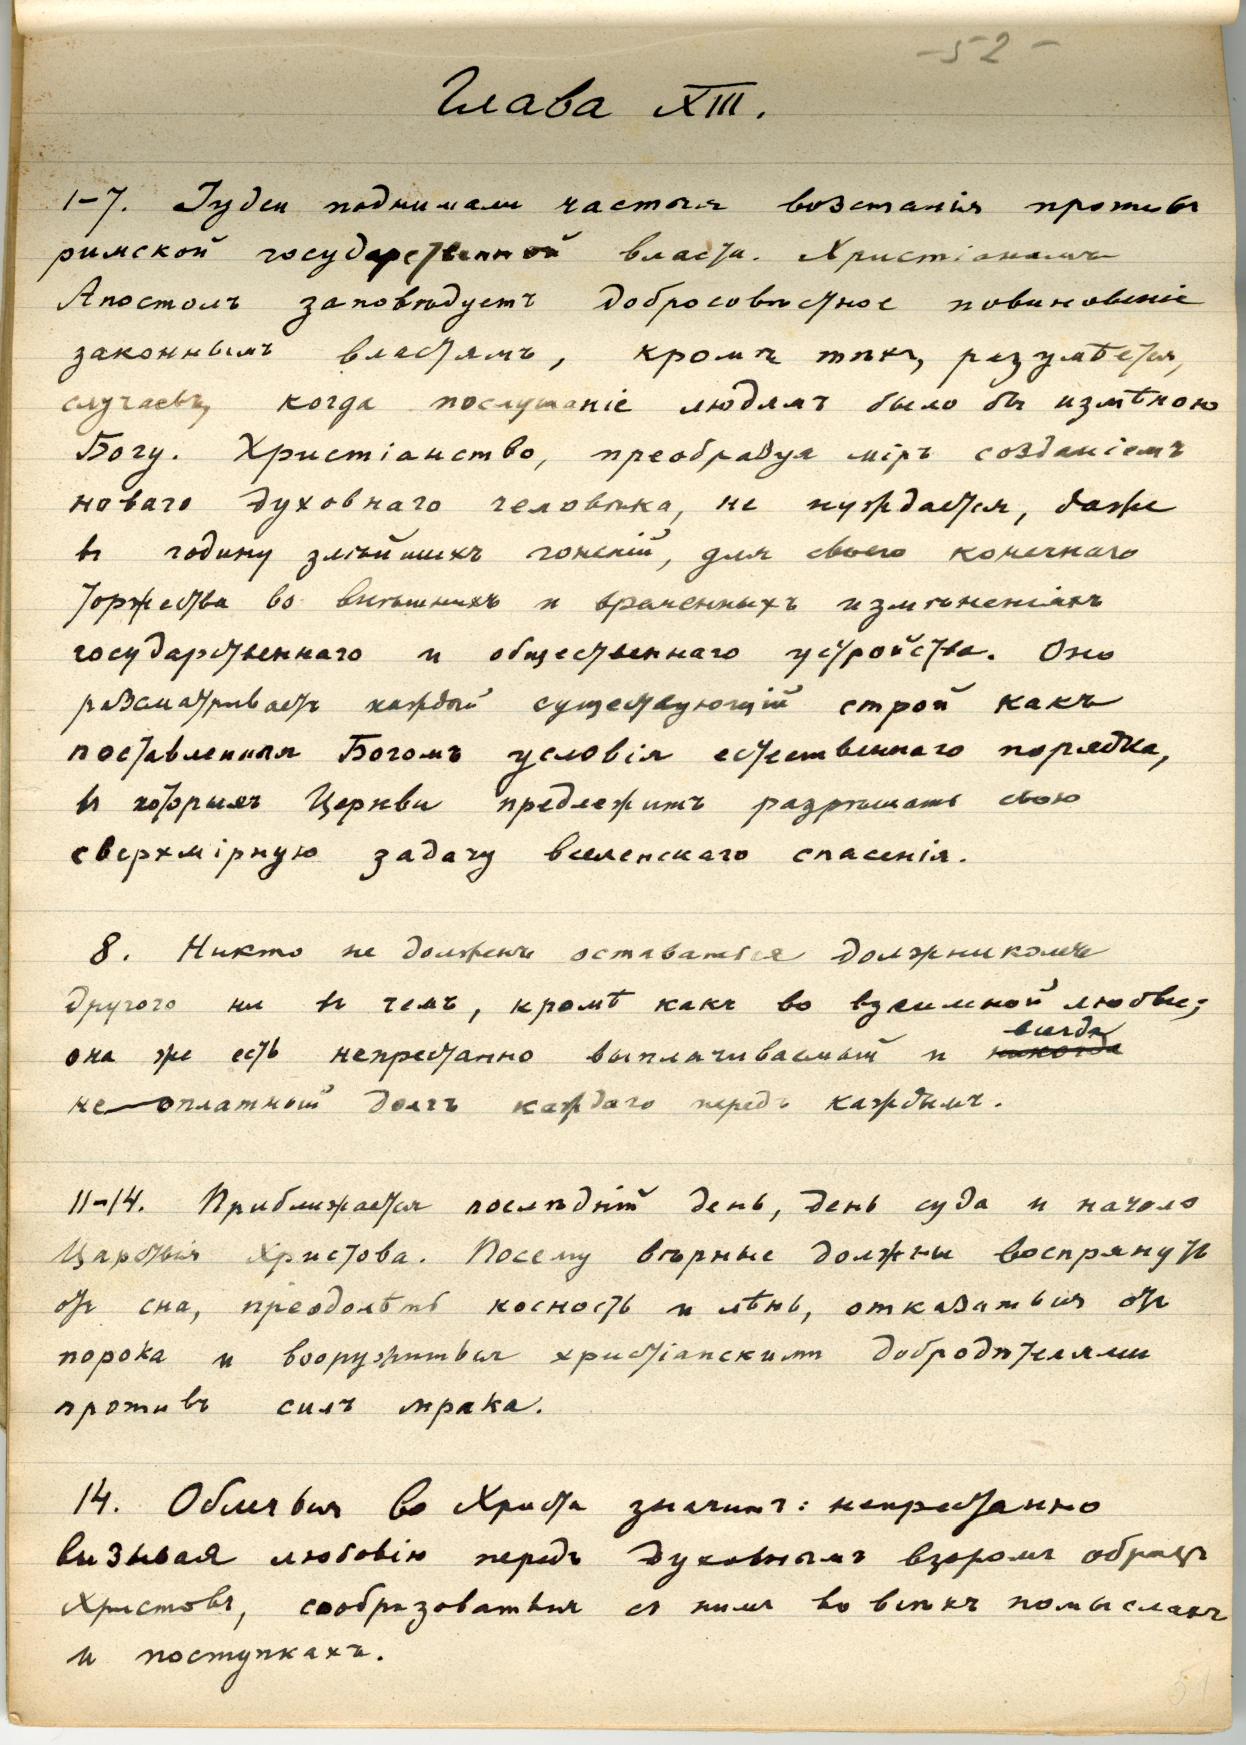 - 52 -
Глава XIII.
1-7. Іудеи поднимали частыя возстанія противъ
римской государственной власти. Христіанамъ
Апостолъ заповѣдуетъ добросовѣстное повиновеніе
законнымъ властямъ, кромѣ тѣхъ, разумѣется,
случаевъ, когда послушаніе людямъ было бы измѣною
Богу. Христіанство, преобразуя міръ созданіемъ
новаго духовнаго человѣка, не нуждается, даже
въ годину злѣйшихъ гоненій, для своего конечнаго
торжества во внѣшнихъ и временныхъ измѣненіяхъ
государственнаго и общественнаго устройства. Оно
разсматриваетъ каждый существующій строй какъ
поставленныя Богомъ условія естественнаго порядка,
въ которыхъ Церкви предлежитъ разрѣшать свою
сверхмірную задачу вселенскаго спасенія.
8. Никто не долженъ оставаться должникомъ
другого ни въ чемъ, кромѣ какъ во взаимной любви;
всегда
она же есть непрестанно выплачиваемый и никогда
не-оплатный долгъ каждаго передъ каждымъ.
11-14. Приближается послѣдній день, день суда и начало
Царствія Христова. Посему вѣрные должны воспрянуть
отъ сна, преодолѣть косность и лѣнь, отказаться отъ
порока и вооружиться христіанскими добродѣтелями
противъ силъ мрака.
14. Облечься во Христа значитъ: непрестанно
вызывая любовію передъ духовнымъ взоромъ образъ
Христовъ, сообразоваться съ нимъ во всѣхъ помыслахъ
и поступкахъ.
51